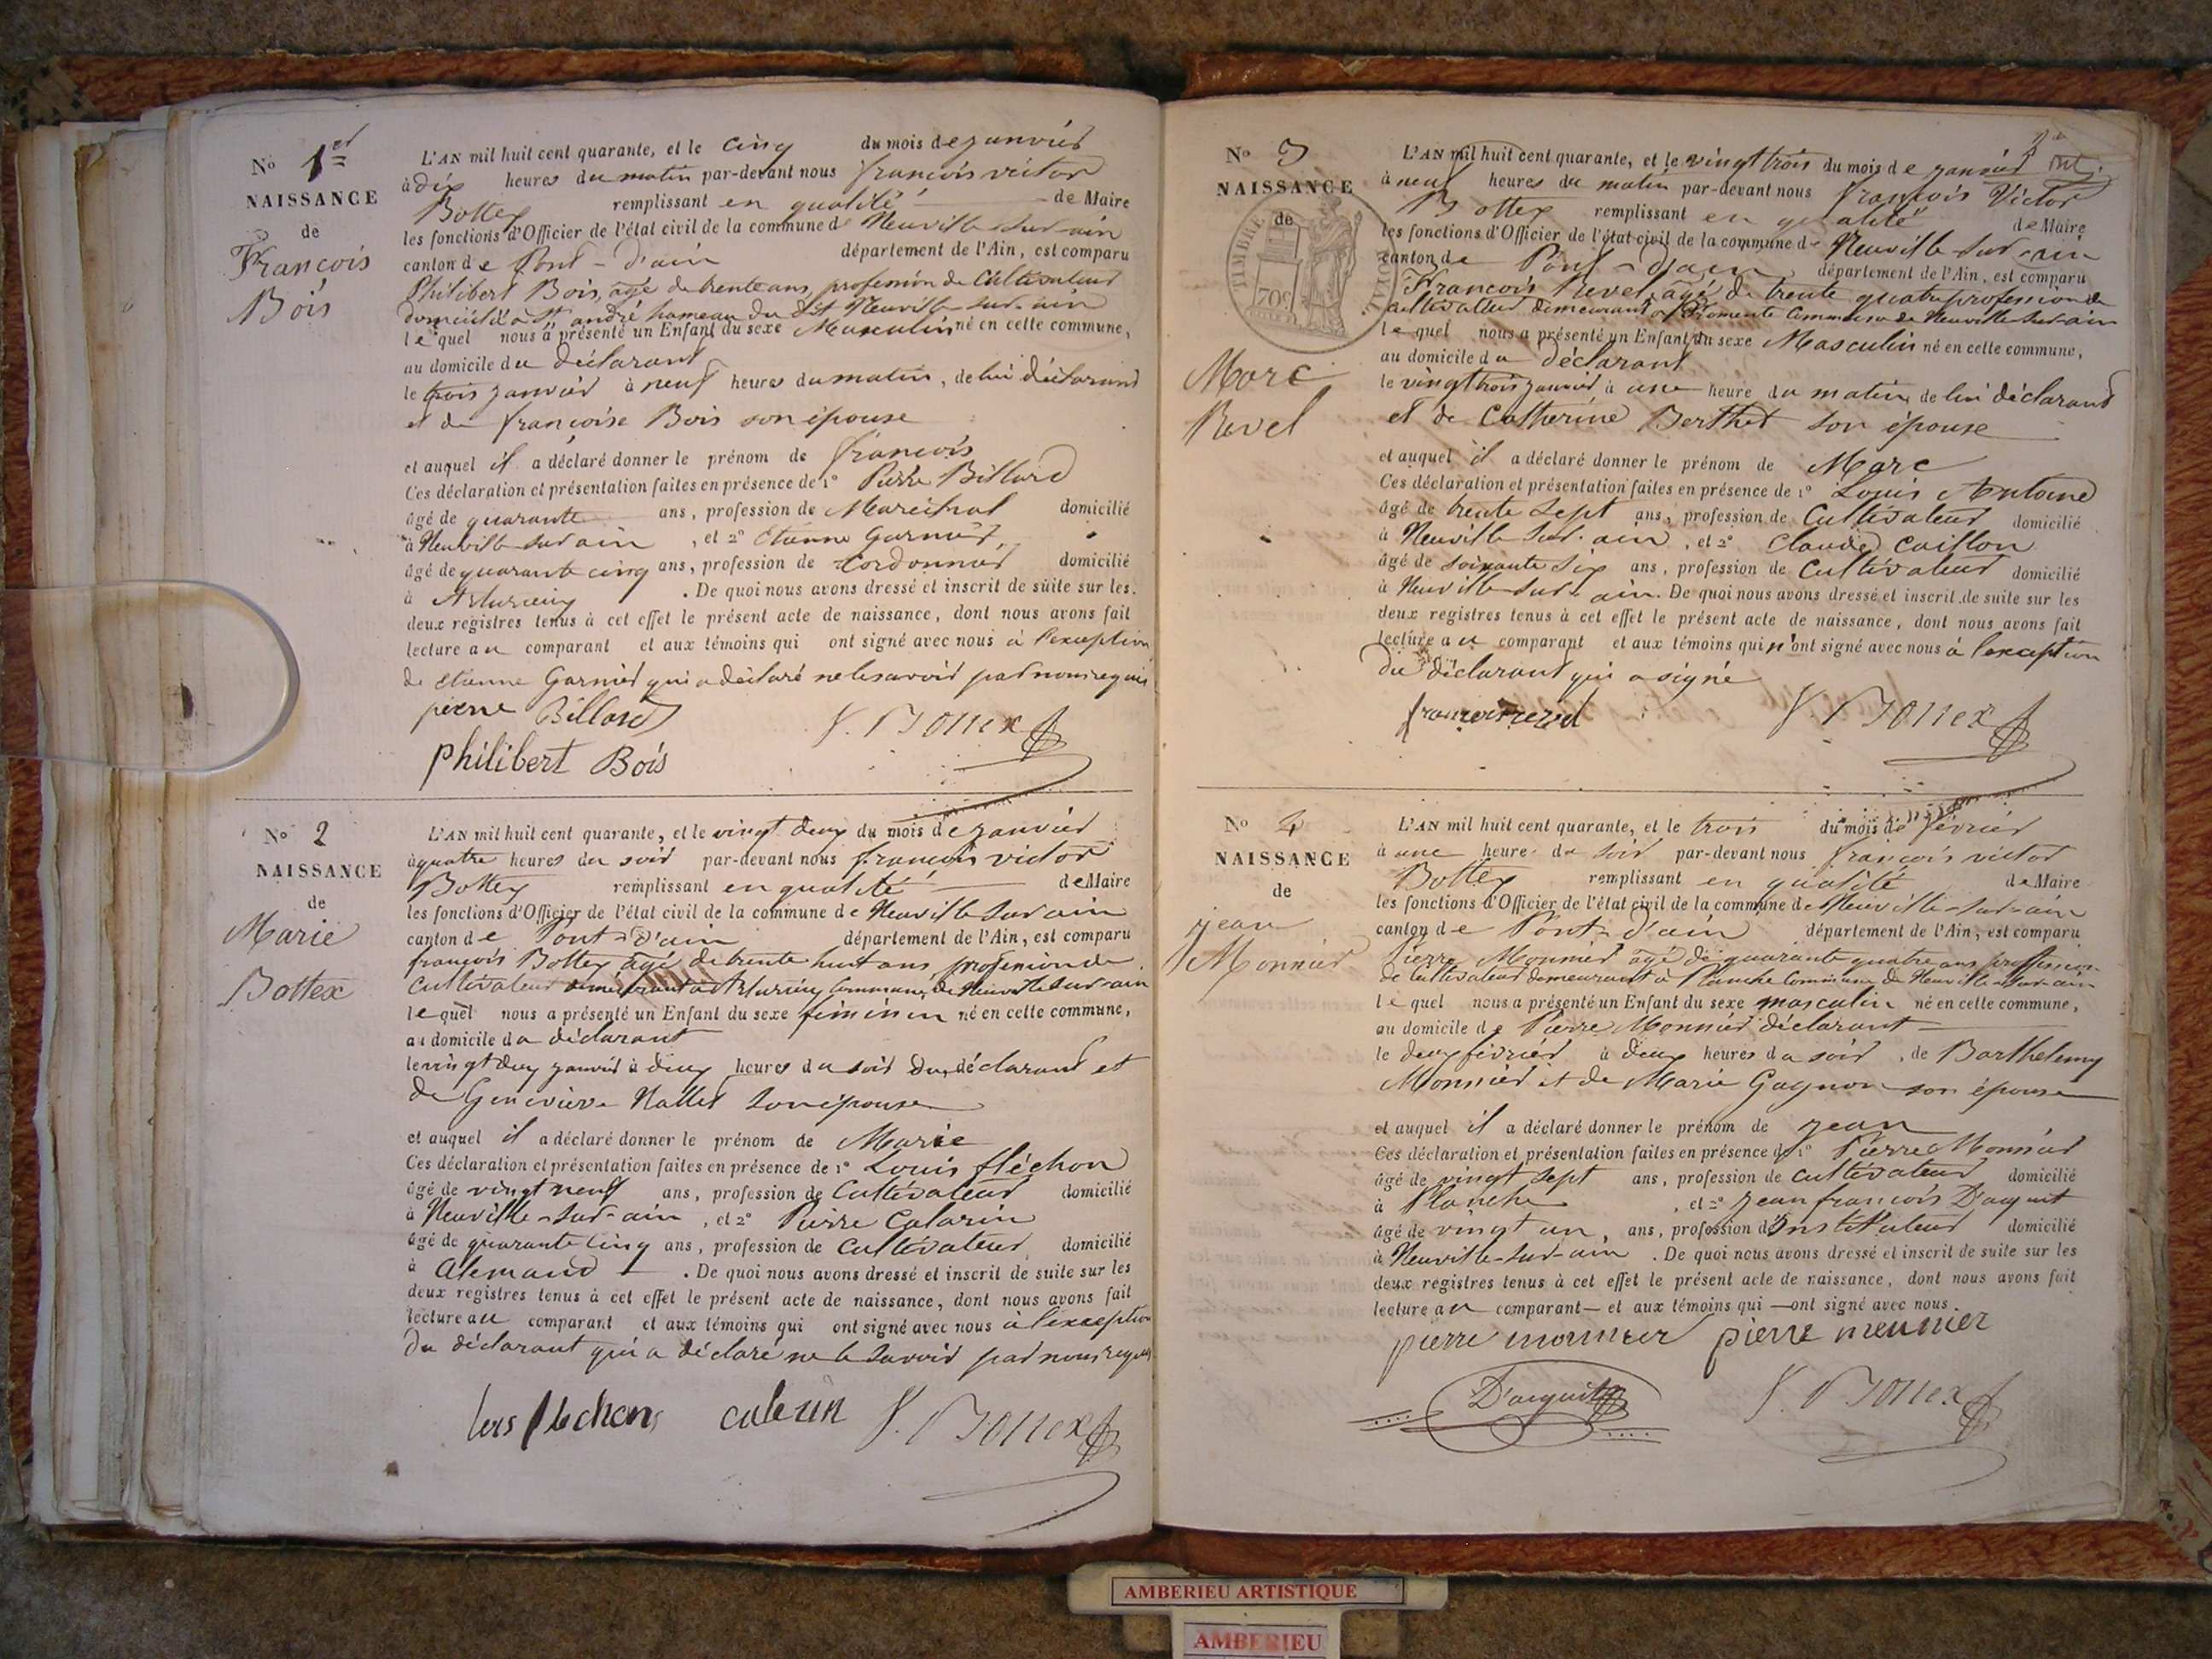 No 1er
NAISSANCE
de
François
Bois
L'AN mil huit cent quarante, et le cinq du mois de janvier
à dix heures du matin par-devant nous françois victor
Bottex remplissant en qualité de Maire
les fonctions d'Officier de l'état civil de la commune de Neuville-sur-ain
canton de Pont-d'ain département de l'Ain, est comparu
Philibert Bois, âgé de trente ans, profession de Cultivateur
domicilié à St andré hameau du dit Neuville-sur-ain
lequel nous a présenté un Enfant du sexe Masculin né en cette commune,
au domicile du déclarant
le trois janvier à neuf heures du matin, de lui déclarant
et de françoise Bois son épouse
et auquel il a déclaré donner le prénom de françois
Ces déclaration et présentation faites en présence de 1° Pierre Billard
âgé de quarante ans, profession de Maréchal domicilié
à Neuville sur ain, et 2° Etienne Garnier,
âgé de quarante cinq ans, profession de Cordonnier domicilié
à . De quoi nous avons dressé et inscrit de suite sur les
deux registres tenus à cet effet le présent acte de naissance, dont nous avons fait
lecture au comparant et aux témoins qui ont signé avec nous à l'exception
de etienne Garnier qui a déclaré ne le savoir par nous requis
pierre Billard
f. Bottex
philibert Bois
No 2
NAISSANCE
de
Marie
Bottex
L'AN mil huit cent quarante, et le vingt deux du mois de janvier
à quatre heures du soir par-devant nous françois victor
Bottex remplissant en qualité de Maire
les fonctions d'Officier de l'état civil de la commune de Neuville sur ain
canton de Pont-d'ain département de l'Ain, est comparu
françois Bottex âgé de trente huit ans, profession de
Cultivateur demeurant à commune de Neuville sur ain
lequel nous a présenté un Enfant du sexe féminin né en cette commune,
au domicile du déclarant
le vingt deux janvier à deux heures du soir du déclarant et
de Geneviève Nallet son épouse
et auquel il a déclaré donner le prénom de Marie
Ces déclaration et présentation faites en présence de 1° Louis fléchon
âgé de vingt neuf ans, profession de Cultivateur domicilié
à Neuville-sur-ain, et 2° Pierre Calarin
âgé de quarante cinq ans, profession de Cultivateur domicilié
à Alemand . De quoi nous avons dressé et inscrit de suite sur les
deux registres tenus à cet effet le présent acte de naissance, dont nous avons fait
lecture au comparant et aux témoins qui ont signé avec nous à l'exception
du déclarant qui a déclaré ne le savoir par nous requis
f. Bottex
No 3
NAISSANCE
de
TIMBRE ROYAL
Marc
Revel
L'AN mil huit cent quarante, et le vingt trois du mois de janvier
à neuf heures du matin par-devant nous françois Victor
Bottex remplissant en qualité de Maire
les fonctions d'Officier de l'état civil de la commune de Neuville sur ain
canton de Pont-d'ain département de l'Ain, est comparu
François Revel, âgé de trente quatre profession de
cultivateur demeurant à commune de Neuville sur ain
lequel nous a présenté un Enfant du sexe Masculin né en cette commune,
au domicile du déclarant
le vingt trois janvier à une heure du matin, de lui déclarant
et de Catherine Berthet son épouse
et auquel il a déclaré donner le prénom de Marc
Ces déclaration et présentation faites en présence de 1° Louis Antoine
âgé de trente sept ans, profession de Cultivateur domicilié
à Neuville sur-ain, et 2° Claude Caillon
âgé de soixante six ans, profession de Cultivateur domicilié
à Neuville-sur-ain. De quoi nous avons dressé et inscrit de suite sur les
deux registres tenus à cet effet le présent acte de naissance, dont nous avons fait
lecture au comparant et aux témoins qui n'ont signé avec nous à l'exception
du déclarant qui a signé
f. Bottex
No 4
NAISSANCE
de
jean
Monnier
L'AN mil huit cent quarante, et le trois du mois de février
à une heure du soir par-devant nous françois victor
Bottex remplissant en qualité de Maire
les fonctions d'Officier de l'état civil de la commune de Neuville-sur-ain
canton de Pont-d'ain département de l'Ain, est comparu
Pierre Monnier âgé de quarante quatre ans, profession
de Cultivateur demeurant à Planche Commune de Neuville-sur-ain
lequel nous a présenté un Enfant du sexe masculin né en cette commune,
au domicile de Pierre Monnier déclarant
le deux février à deux heures du soir, de Barthelemy
Monnier et de Marie Gagnon son épouse
et auquel il a déclaré donner le prénom de jean
Ces déclaration et présentation faites en présence de 1° Pierre Monnier
âgé de vingt sept ans, profession de cultivateur domicilié
à Planche, et 2° jean françois D'aguit
âgé de vingt un, ans, profession d'Instituteur domicilié
à Neuville-sur-ain. De quoi nous avons dressé et inscrit de suite sur les
deux registres tenus à cet effet le présent acte de naissance, dont nous avons fait
lecture au comparant — et aux témoins qui — ont signé avec nous.
pierre monnier pierre meunier
D'aguit
f. Bottex
AMBERIEU ARTISTIQUE
AMBERIEU